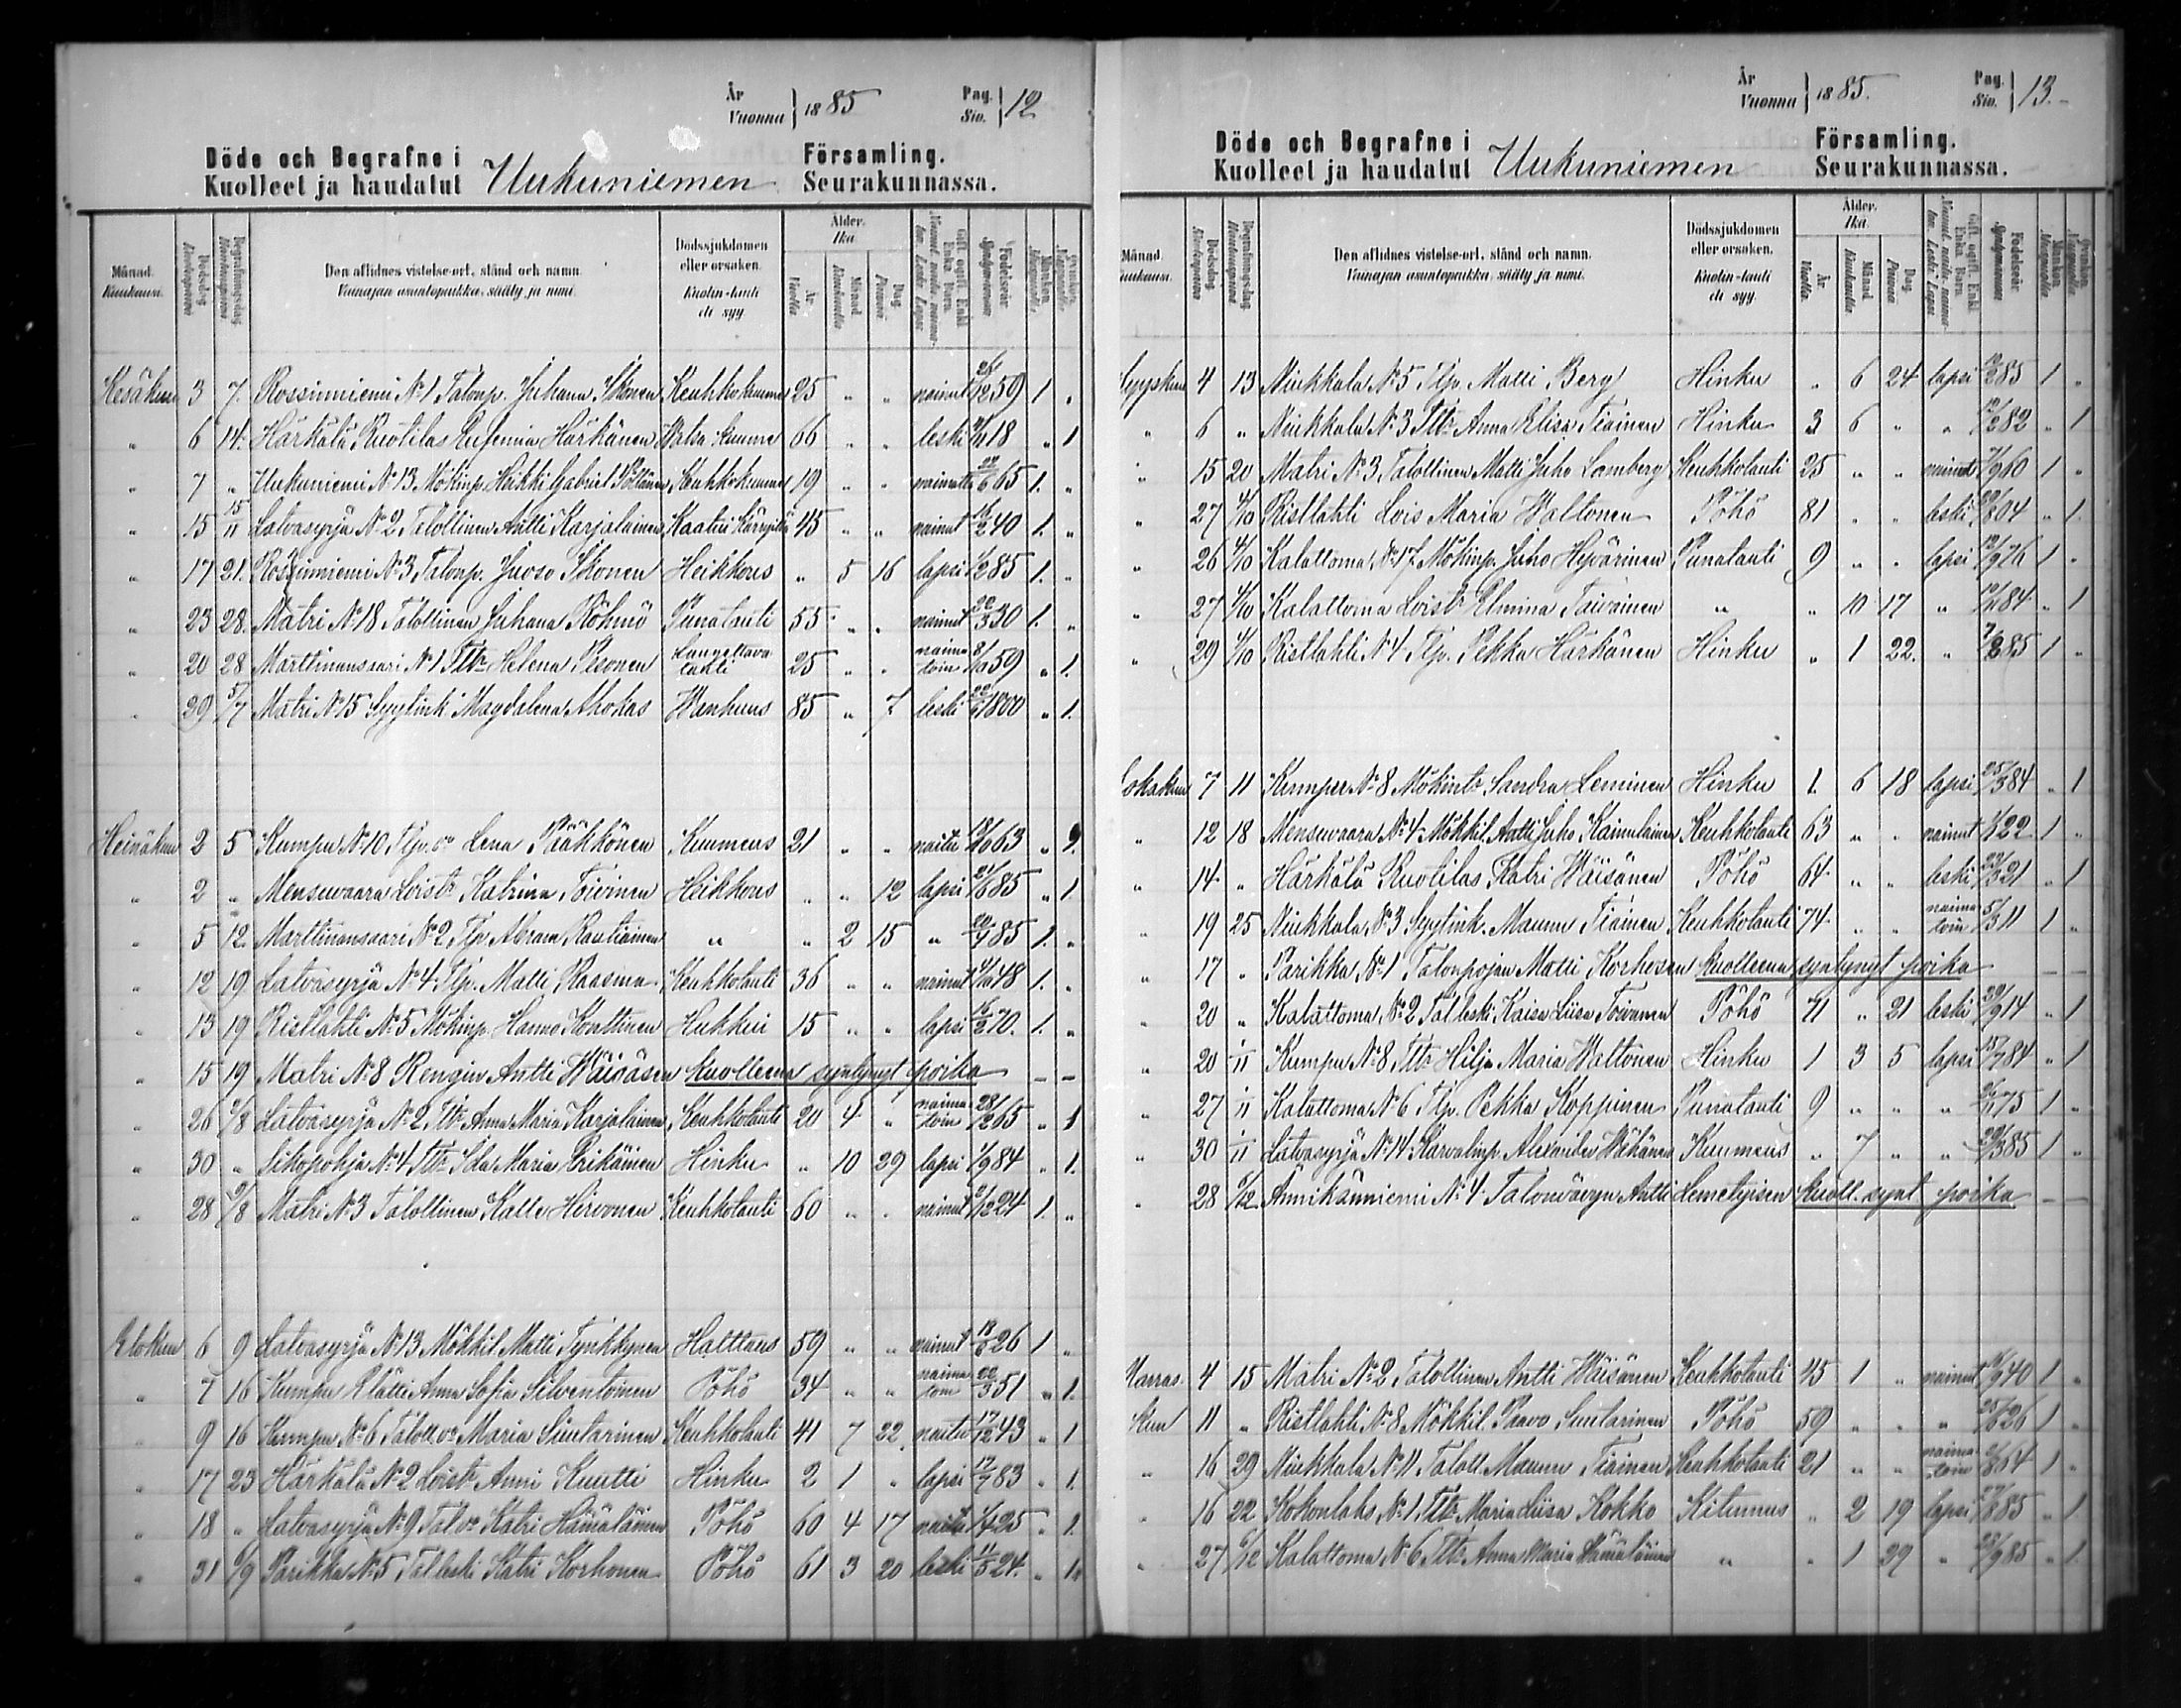 År
Vuonna } 1885
Pag.
Siv. } 12
Döde och Begrafne i
Kuolleet ja haudatut Uukuniemen
Församling.
Seurakunnassa.
Månad.
Kuukausi.
Dödsdag
Kuolinpäivä
Begrafningsdag
Hautauspäivä
Den aflidnes vistelse-ort, stånd och namn.
Vainajan asuntopaikka, sääty ja nimi.
Dödssjukdomen eller orsaken.
Kuolin-tauti eli syy.
Ålder.
Ikä.
År
Vuotta.
Månad
Kuukautta
Dag
Päivää
Gift, ogift, Enkl. Enka, Barn.
Födelseår
Syntymävuosi
Mankön
Miespuolia
Qvinkön
Vaimopuolia
Kesäkuu 3 7. Rossinniemi No 1 Talonp. Juhana Ikonen Keuhkokuume 25 „ „ nainut 59 1 „
„ 6 14. Härkälä Ruotilas Eufemia Härkänen Vatsa kuume 66 „ „ leski 18 „ 1
„ 7 „ Uukuniemi No 13 Mökinp. Heikki Gabriel Pöllänen Keuhkokuume 19 „ „ 22/6 65 1. „
„ 15 15/11 Latvasyrjä No 2 Talollinen Antti Karjalainen 45 „ „ nainut 16/2 40 1. „
„ 17 21. Rossinniemi No 3 Talonp. Juoso Ikonen Heikkous „ 5 16 lapsi 1/2 85 1. „
„ 23 28. Matri No 18 Talollinen Juhana Röhmö Punatauti 55 „ „ nainut 22/3 30 1. „
„ 20 28 Marttinansaari No 1 Ttr Helena Pesonen Langettava tauti 25 „ „ naimatoin 8/10 59 „ 1.
„ 29 5/7 Matri No 15 Syytink Magdalena Ahokas Wanhuus 85 „ 7 leski 22/6 1800 „ 1.
Heinäkuu 2 5 Kumpu No 10 Tlp. vo Lena Pääkkönen Kuumeus 21 „ „ naitu 18/10 63 „ 1.
„ 2 „ Mensuvaara Loistr Katrina Toivinen Heikkous „ „ 12 lapsi 21/6 85 „ 1
„ 5 12. Marttinansaari No 2 Tlp. Abram Rautiainen „ „ 2 15 „ 20/4 85 1. „
„ 12 19 Latvasyrjä No 4 Tlp. Matti Raasma Keuhkotauti 36 „ „ nainut 48 1. „
„ 13 19 Ristlahti No 5 Mökinp. Hanno Konttinen Hukkui 15 „ „ lapsi 16/2 70. 1. „
„ 15 19 Matri No 8 Rengin Antti Wäisäsen kuolleena syntynyt poika – –
„ 26 2/8 Latvasyrjä No 2 Ttr Anna Maria Karjalainen Keuhkotauti 20 4 „ naimatoin 28/2 65 „ 1
„ 30 „ Sikopohja No 4 Ttr Ida Maria Erikäinen Hinku „ 10 29 lapsi 1/9 84 „ 1.
„ 28 9/8 Matri No 3 Talollinen Kalle Hirvonen Keuhkotauti 60 „ „ nainut 24 1. „
Elokuu 6 9 Latvasyrjä No 13 Mökkil. Matti Tynkkynen Halttaus 59 „ „ nainut 18/6 26 1 „
„ 7 16 Kumpu Elätti Anna Sofia Silventoinen Pöhö 34 „ „ naimatoin 22/3 51 „ 1.
„ 9 16 Kumpu No 6 Taloll. vo Maria Suutarinen Keuhkotauti 41 7 22 naitu 17/12 43 „ 1
„ 17 23 Härkälä No 2 Loistr Anni Kuutti Hinku 2 1 „ lapsi 17/7 83 „ 1.
„ 18 „ Latvasyrjä No 9 Tal. vo Katri Hämäläinen Pöhö 60 4 17 naitu 1/4 25 „ 1.
„ 31 6/9 Parikka No 5 Tal leski Katri Korhonen Pöhö 61 3 20 leski 11/5 24. „ 1.
År
Vuonna } 1885.
Pag.
Siv. } 13.
Döde och Begrafne i
Kuolleet ja haudatut Uukuniemen
Församling.
Seurakunnassa.
Månad.
Kuukausi.
Dödsdag
Kuolinpäivä
Begrafningsdag
Hautauspäivä
Den aflidnes vistelse-ort, stånd och namn.
Vainajan asuntopaikka, sääty ja nimi.
Dödssjukdomen eller orsaken.
Kuolin-tauti eli syy.
Ålder.
Ikä.
År
Vuotta.
Månad
Kuukautta
Dag
Päivää
Gift, ogift, Enkl. Enka, Barn.
Födelseår
Syntymävuosi
Mankön
Miespuolia
Qvinkön
Vaimopuolia
Syyskuu 4 13 Niukkala No 5 Tlp. Matti Berg Hinku „ 6 24 lapsi 10/2 85 1 „
„ 6 „ Niukkala No 3 Ttr Anna Elisa Tiainen Hinku 3 6 „ „ 12/2 82 „ 1
„ 15 20 Matri No 3 Talollinen Matti Juho Lomberg Keuhkotauti 25 „ „ nainut 7/9 60 1 „
„ 27 4/10 Ristlahti Lois Maria Waltonen Pöhö 81 „ „ leski 04 „ 1.
„ 26 4/10 Kalattoma No 17 Mökinp. Juho Hyvärinen Punatauti 9 „ „ lapsi 12/9 76 1 „
„ 27 4/10 Kalattoma Loistr Elmina Taivainen „ „ 10 17 „ 84 „ 1
„ 29 4/10 Ristlahti No 4 Tlp. Pekka Härkönen Hinku „ 1 22. „ 7/8 85 1 „
Lokakuu 7 11 Kumpu No 8 Mökintr Sandra Leminen Hinku 1. 6 18 lapsi 25/3 84 „ 1
„ 12 18 Mensuvaara No 4 Mökkil. Antti Juho Kainulainen Keuhkotauti 63 „ „ nainut 22 1 „
„ 14 „ Härkälä Ruotilas Katri Wäisänen Pöhö 64 „ „ leski 21 „ 1
„ 19 25 Niukkala No 3 Syytink. Maunu Tiainen Keuhkotauti 74 „ „ naimatoin 5/3 11 1 „
„ 17 „ Parikka No 1 Talonpojan Matti Korhosen kuolleena syntynyt poika – –
„ 20 „ Kalattoma No 2 Tal leski Kaisa Liisa Toivanen Pöhö 71 „ 21 leski 29/9 14 „ 1
„ 20 1/11 Kumpu No 8 Ttr Hilja Maria Waltonen Hinku 1 3 5 lapsi 15/7 84 „ 1
„ 27 1/11 Kalattoma No 6 Tlp. Pekka Koppinen Punatauti 9 „ „ „ 75 1 „
„ 30 1/11 Latvasyrjä No 14 Karvalinp. Alexander Wähänen Kuumeus „ 7 „ „ 29/3 85 1 „
„ 28 6/12 Annikänniemi No 4 Talonvävyn Antti Lemetyisen kuoll. synt poika – –
Marras- 4 15 Matri No 2 Talollinen Antti Wäisänen Keuhkotauti 45 1 „ nainut 40 1 „
kuu 11 „ Ristlahti No 8 Mökkil. Paavo Suutarinen Pöhö 59 „ „ „ 25/6 26 1 „
„ 16 29 Niukkala No 11 Taloll. Maunu Tiainen Keuhkotauti 21 „ „ naimatoin 64 1 „
„ 16 22 Kokonlaks No 1 Ttr Maria Liisa Kokko Kitumus „ 2 19 lapsi 27/8 85 „ 1
„ 27 6/12 Kalattoma No 6 Ttr Anna Maria Hämäläinen „ „ 1 29 „ 28/9 85 „ 1.